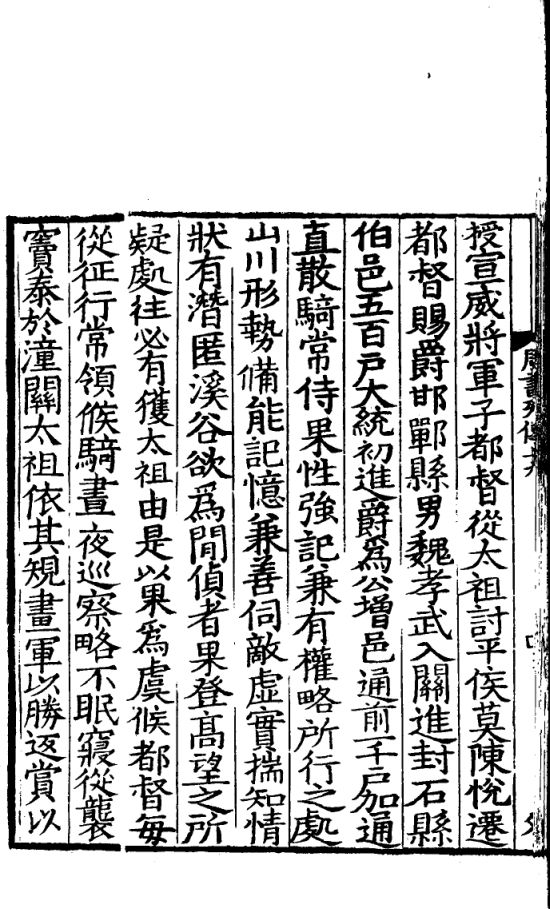 授宣威將軍子都督從太祖討平侯莫陳悅遷
都督賜爵邯鄲縣男魏孝武入關進封石縣
伯邑五百戶大統初進爵爲公增邑通前一千戶加通
直散騎常侍果性強記兼有權略所行之處
山川形勢備能記憶兼善伺敵虛實揣知情
狀有潛匿溪谷欲爲閒偵者果登高望之所
疑處往必有獲太祖由是以果爲虞候都督每
從征行常領候騎晝夜巡察略不眠寢從襲
竇泰於潼關太祖依其規畫軍以勝返賞以